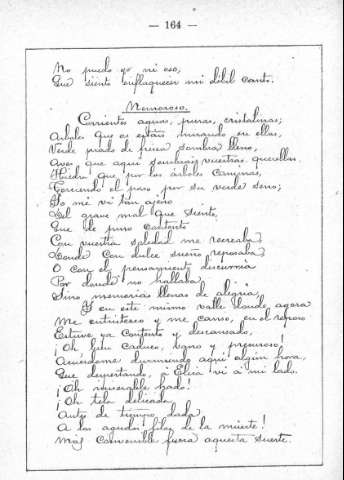 — 164 —
No puedo yo ni oso,
Que siento enflaquecer mi débil canto.
Nemoroso.
Corrientes aguas, puras, cristalinas;
Arboles que os estáis mirando en ellas,
Verde prado de fresca sombra lleno,
Aves que aquí sembráis vuestras querellas.
Hiedra que por los árboles caminas,
Torciendo el paso por su verde seno;
Yo me vi tan ajeno
Del grave mal que siento,
Que de puro contento
Con vuestra soledad me recreaba,
Donde con dulce sueño reposaba,
O con el pensamiento discurría
Por donde no hallaba
Sino memorias llenas de alegría,
Y en este mismo valle, donde agora
Me entristezco y me canso, en el reposo
Estuve ya contento y descansado,
¡Oh bien caduco, vano y presuroso!
Acuérdome durmiendo aquí algún hora,
Que despertando, á Elisa vi á mi lado.
¡Oh miserable hado!
¡Oh tela delicada,
Antes de tiempo dada
A los agudos filos de la muerte!
Más convenible fuera aquesta suerte.